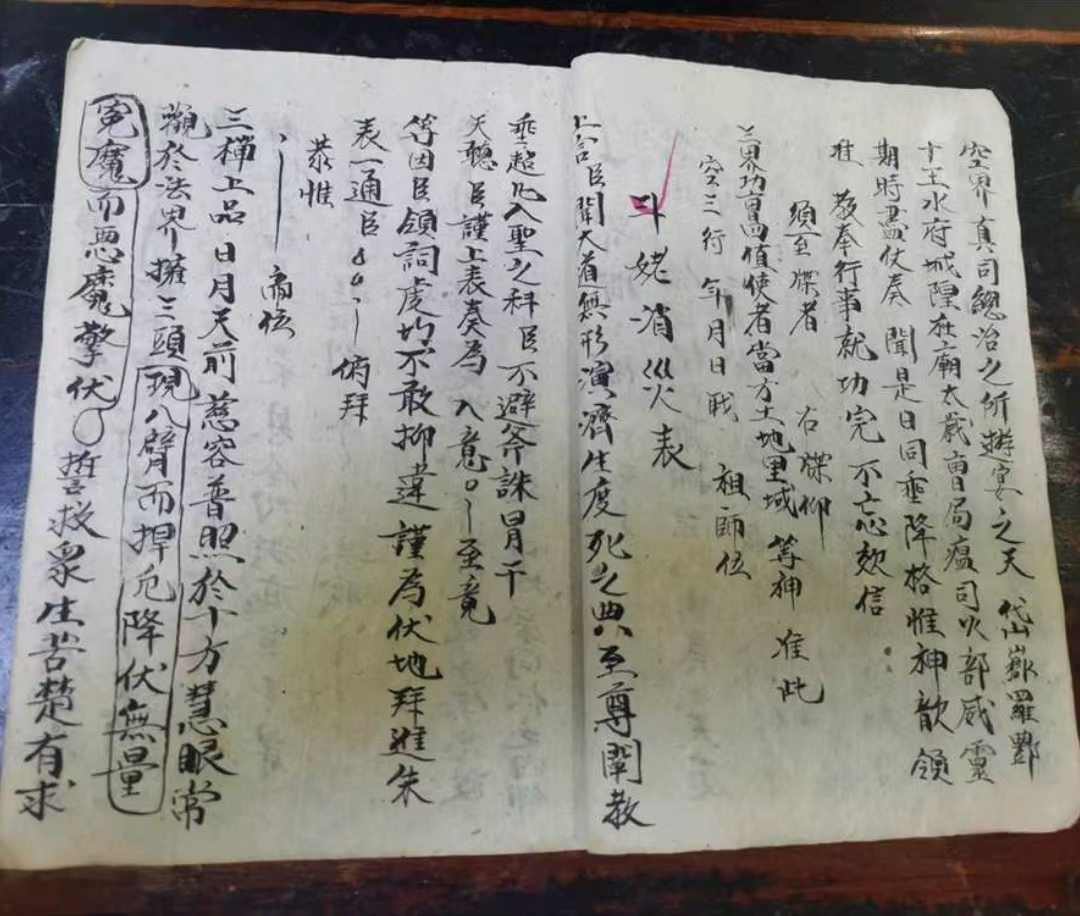 空界真司總治之所遊宴之天 岱嶽羅酆
十王水府城隍社廟太歲曹局瘟司火部威靈
期時盡仗奏 聞是日同垂降格惟神歆領
准 教奉行事就功完不忘効信
須至牒者 右牒仰
三界功曹四值使者當方土地里域等神 准此
空三行 年月日戠 祖師位
斗姥消災表
上言臣聞大道無形演濟生度死之典至尊闡教
垂超凡入聖之科臣不避斧誅冒干
天聽臣謹上表奏為 入意〇至竟
等因臣領詞虔切不敢抑違謹為伏地拜進朱
表一通臣 俯拜
恭惟
帝位
三檯上品日月天前慈容普照於十方慧眼常
觀於法界擁三頭現八臂而捍厄降伏無量
冤魔而惡魔擎伏〇誓救衆生苦楚有求